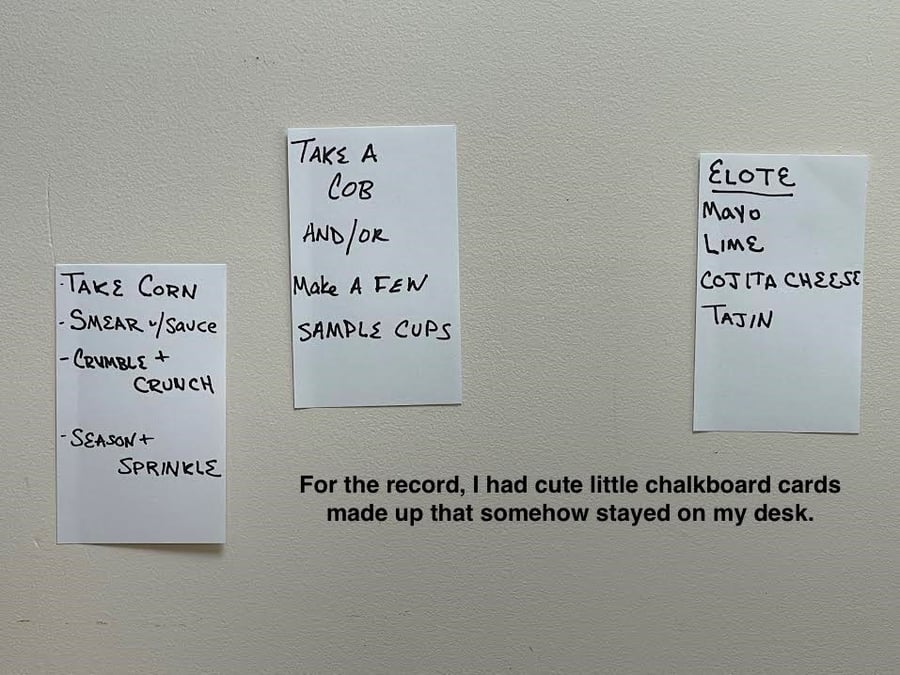 - TAKE CORN
- SMEAR w/SAUCE
- CRUMBLE +
CRUNCH
- SEASON +
SPRINKLE
TAKE A
COB
AND/OR
Make A FEW
SAMPLE CUPS
ELOTE
Mayo
LIME
COJITA CHEESE
TAJIN
For the record, I had cute little chalkboard cards
made up that somehow stayed on my desk.